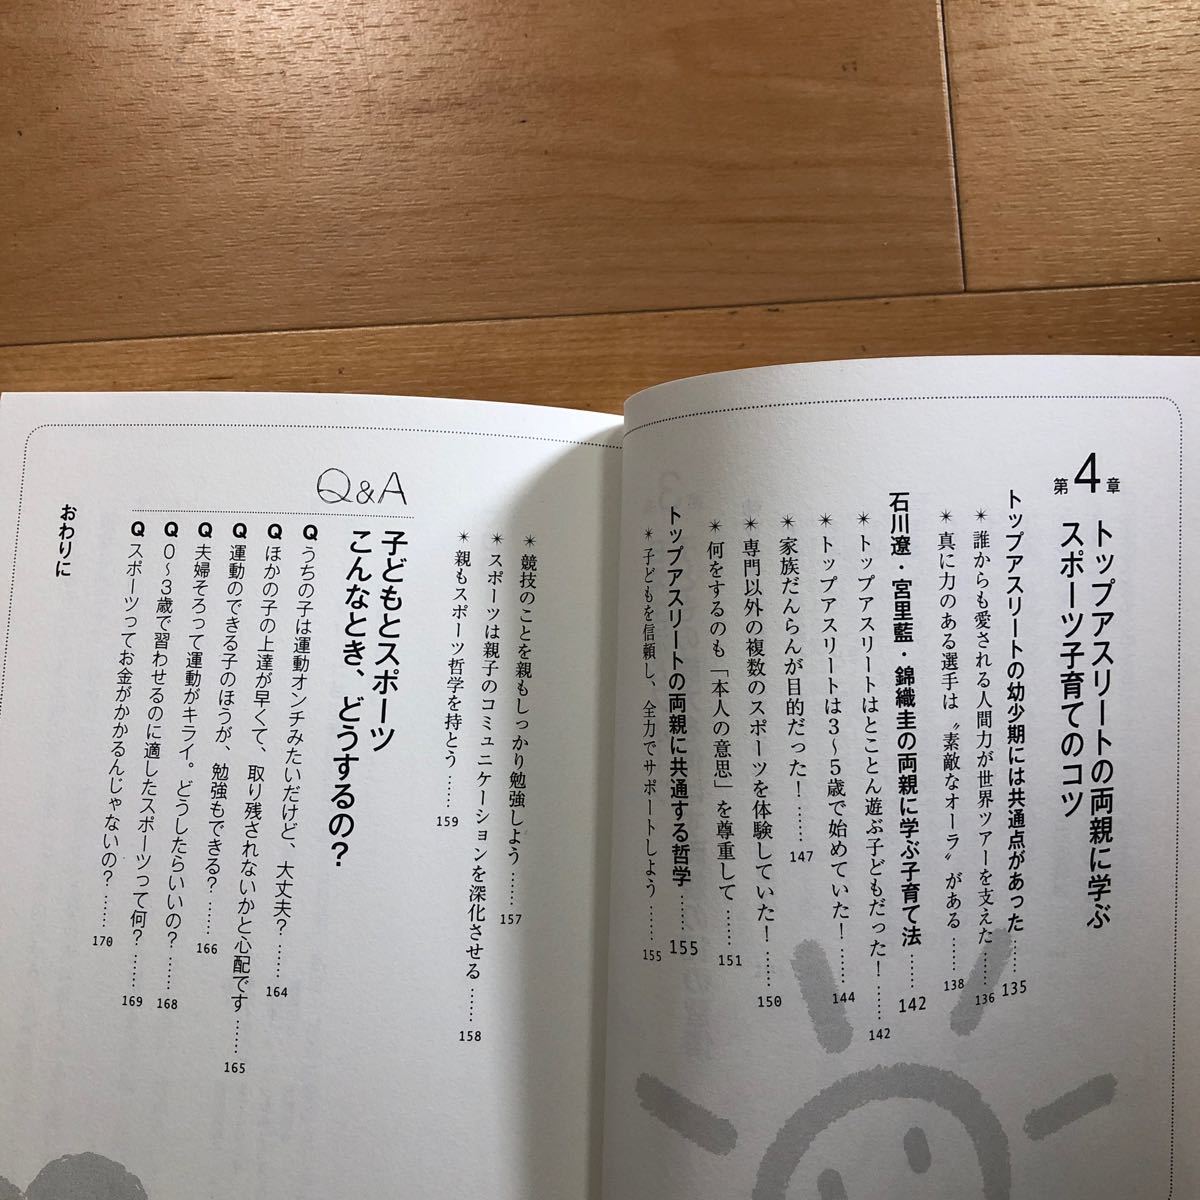 第4章
トップアスリートの両親に学ぶ
スポーツ子育てのコツ
トップアスリートの幼少期には共通点があった……135
＊誰からも愛される人間力が世界ツアーを支えた……136
＊真に力のある選手は〝素敵なオーラ〟がある……138
石川遼・宮里藍・錦織圭の両親に学ぶ子育て法……142
＊トップアスリートはとことん遊ぶ子どもだった！……142
＊トップアスリートは3～5歳で始めていた！……144
＊家族だんらんが目的だった！……147
＊専門以外の複数のスポーツを体験していた！……150
＊何をするのも「本人の意思」を尊重して……151
トップアスリートの両親に共通する哲学……155
＊子どもを信頼し、全力でサポートしよう……155
＊競技のことを親もしっかり勉強しよう……157
＊スポーツは親子のコミュニケーションを深化させる……158
＊親もスポーツ哲学を持とう……159
Q&A
子どもとスポーツ
こんなとき、どうするの？
Q うちの子は運動オンチみたいだけど、大丈夫？……164
Q ほかの子の上達が早くて、取り残されないかと心配です……165
Q 運動のできる子のほうが、勉強もできる？……166
Q 夫婦そろって運動がキライ。どうしたらいいの？……168
Q 0～3歳で習わせるのに適したスポーツって何？……169
Q スポーツってお金がかかるんじゃないの？……170
おわりに